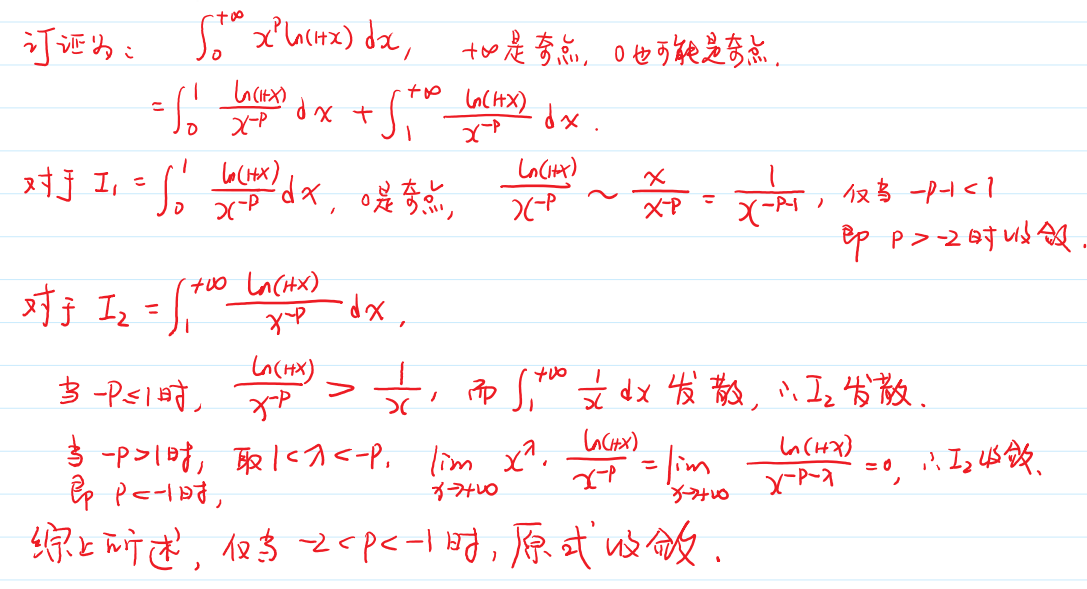 订证为: ∫₀^{+∞} x^p ln(1+x) dx, +∞是奇点, 0也可能是奇点.
= ∫₀^1 ln(1+x)/x^{-p} dx + ∫₁^{+∞} ln(1+x)/x^{-p} dx.
对于 I₁ = ∫₀^1 ln(1+x)/x^{-p} dx, 0是奇点, ln(1+x)/x^{-p} ~ x/x^{-p} = 1/x^{-p-1}, 仅当 -p-1<1
即 p>-2时收敛.
对于 I₂ = ∫₁^{+∞} ln(1+x)/x^{-p} dx,
当 -p≤1时, ln(1+x)/x^{-p} > 1/x, 而 ∫₁^{+∞} 1/x dx 发散, ∴I₂发散.
当 -p>1时, 取 1<λ<-p, lim_{x→+∞} x^λ · ln(1+x)/x^{-p} = lim_{x→+∞} ln(1+x)/x^{-p-λ} = 0, ∴I₂收敛.
即 p<-1时,
综上所述, 仅当 -2<p<-1时, 原式收敛.